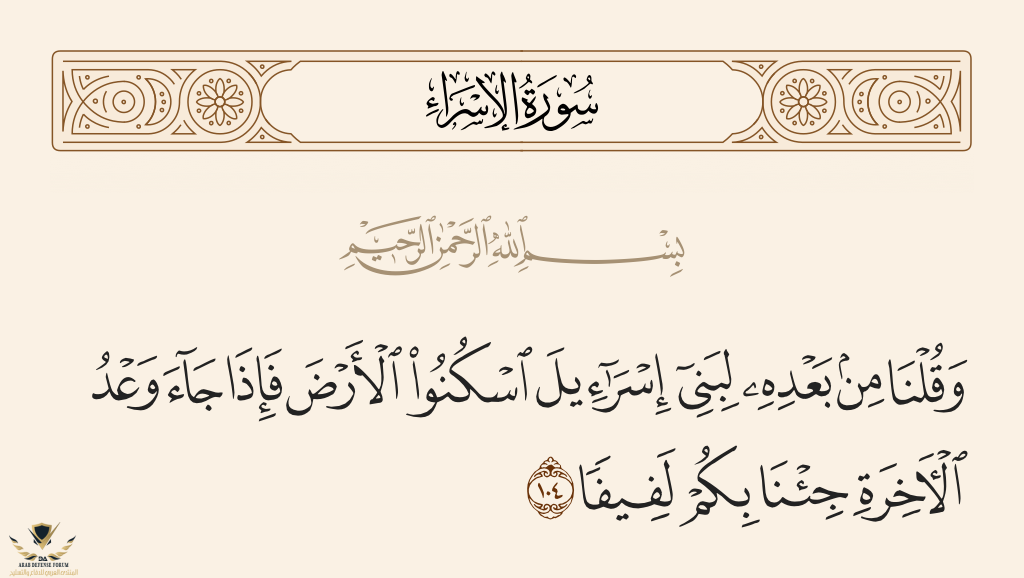 سُورَةُ الإِسْرَاءِ
بِسْمِ ٱللَّهِ ٱلرَّحْمَٰنِ ٱلرَّحِيمِ
وَقُلْنَا مِنۢ بَعْدِهِۦ لِبَنِىٓ إِسْرَٰٓءِيلَ ٱسْكُنُوا۟ ٱلْأَرْضَ فَإِذَا جَآءَ وَعْدُ
ٱلْـَٔاخِرَةِ جِئْنَا بِكُمْ لَفِيفًا ١٠٤
ARAB DEFENSE FORUM
المنتدى العربي للدفاع والتسليح